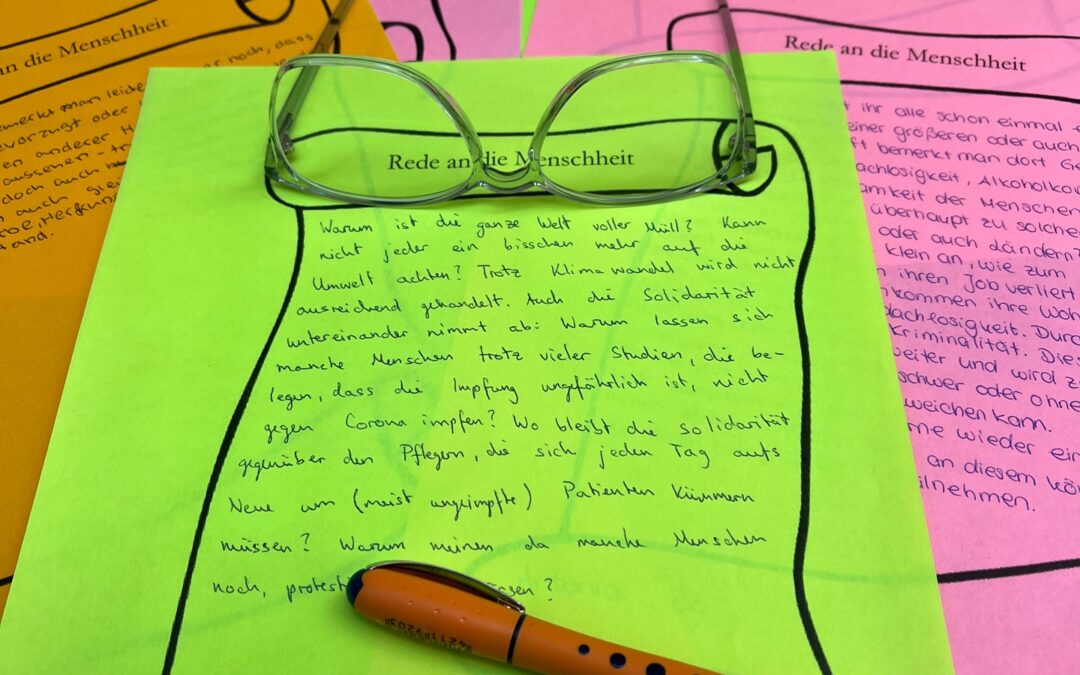 an die Menschheit
noch, dass
bemerkt man leide
bevorzugt oder
en anderer H
aussen - tr
doch auch
auch glei
be, Herkunf
and.
Rede an die Menschheit
Warum ist die ganze Welt voller Müll? Kann
nicht jeder ein bisschen mehr auf die
Umwelt achten? Trotz Klimawandel wird nicht
ausreichend gehandelt. Auch die Solidarität
untereinander nimmt ab: Warum lassen sich
manche Menschen trotz vieler Studien, die be-
legen, dass die Impfung ungefährlich ist, nicht
gegen Corona impfen? Wo bleibt die Solidarität
gegenüber den Pflegern, die sich jeden Tag aufs
Neue um (meist ungeimpfte) Patienten kümmern
müssen? Warum meinen da manche Menschen
noch, protesti ssen?
Rede an die Menschheit
t ihr alle schon einmal
einer größeren oder auch
ft bemerkt man dort Ge
achlosigkeit, Alkoholkon
amkeit der Menschen
überhaupt zu solche
oder auch Ländern?
klein an, wie zum
n ihren Job verliert
kommen ihre Woh
dachlosigkeit. Durc
Kriminalität. Dies
weiter und wird zu
schwer oder ohne
weichen kann.
rne wieder ein
an diesem kö
ilnehmen.